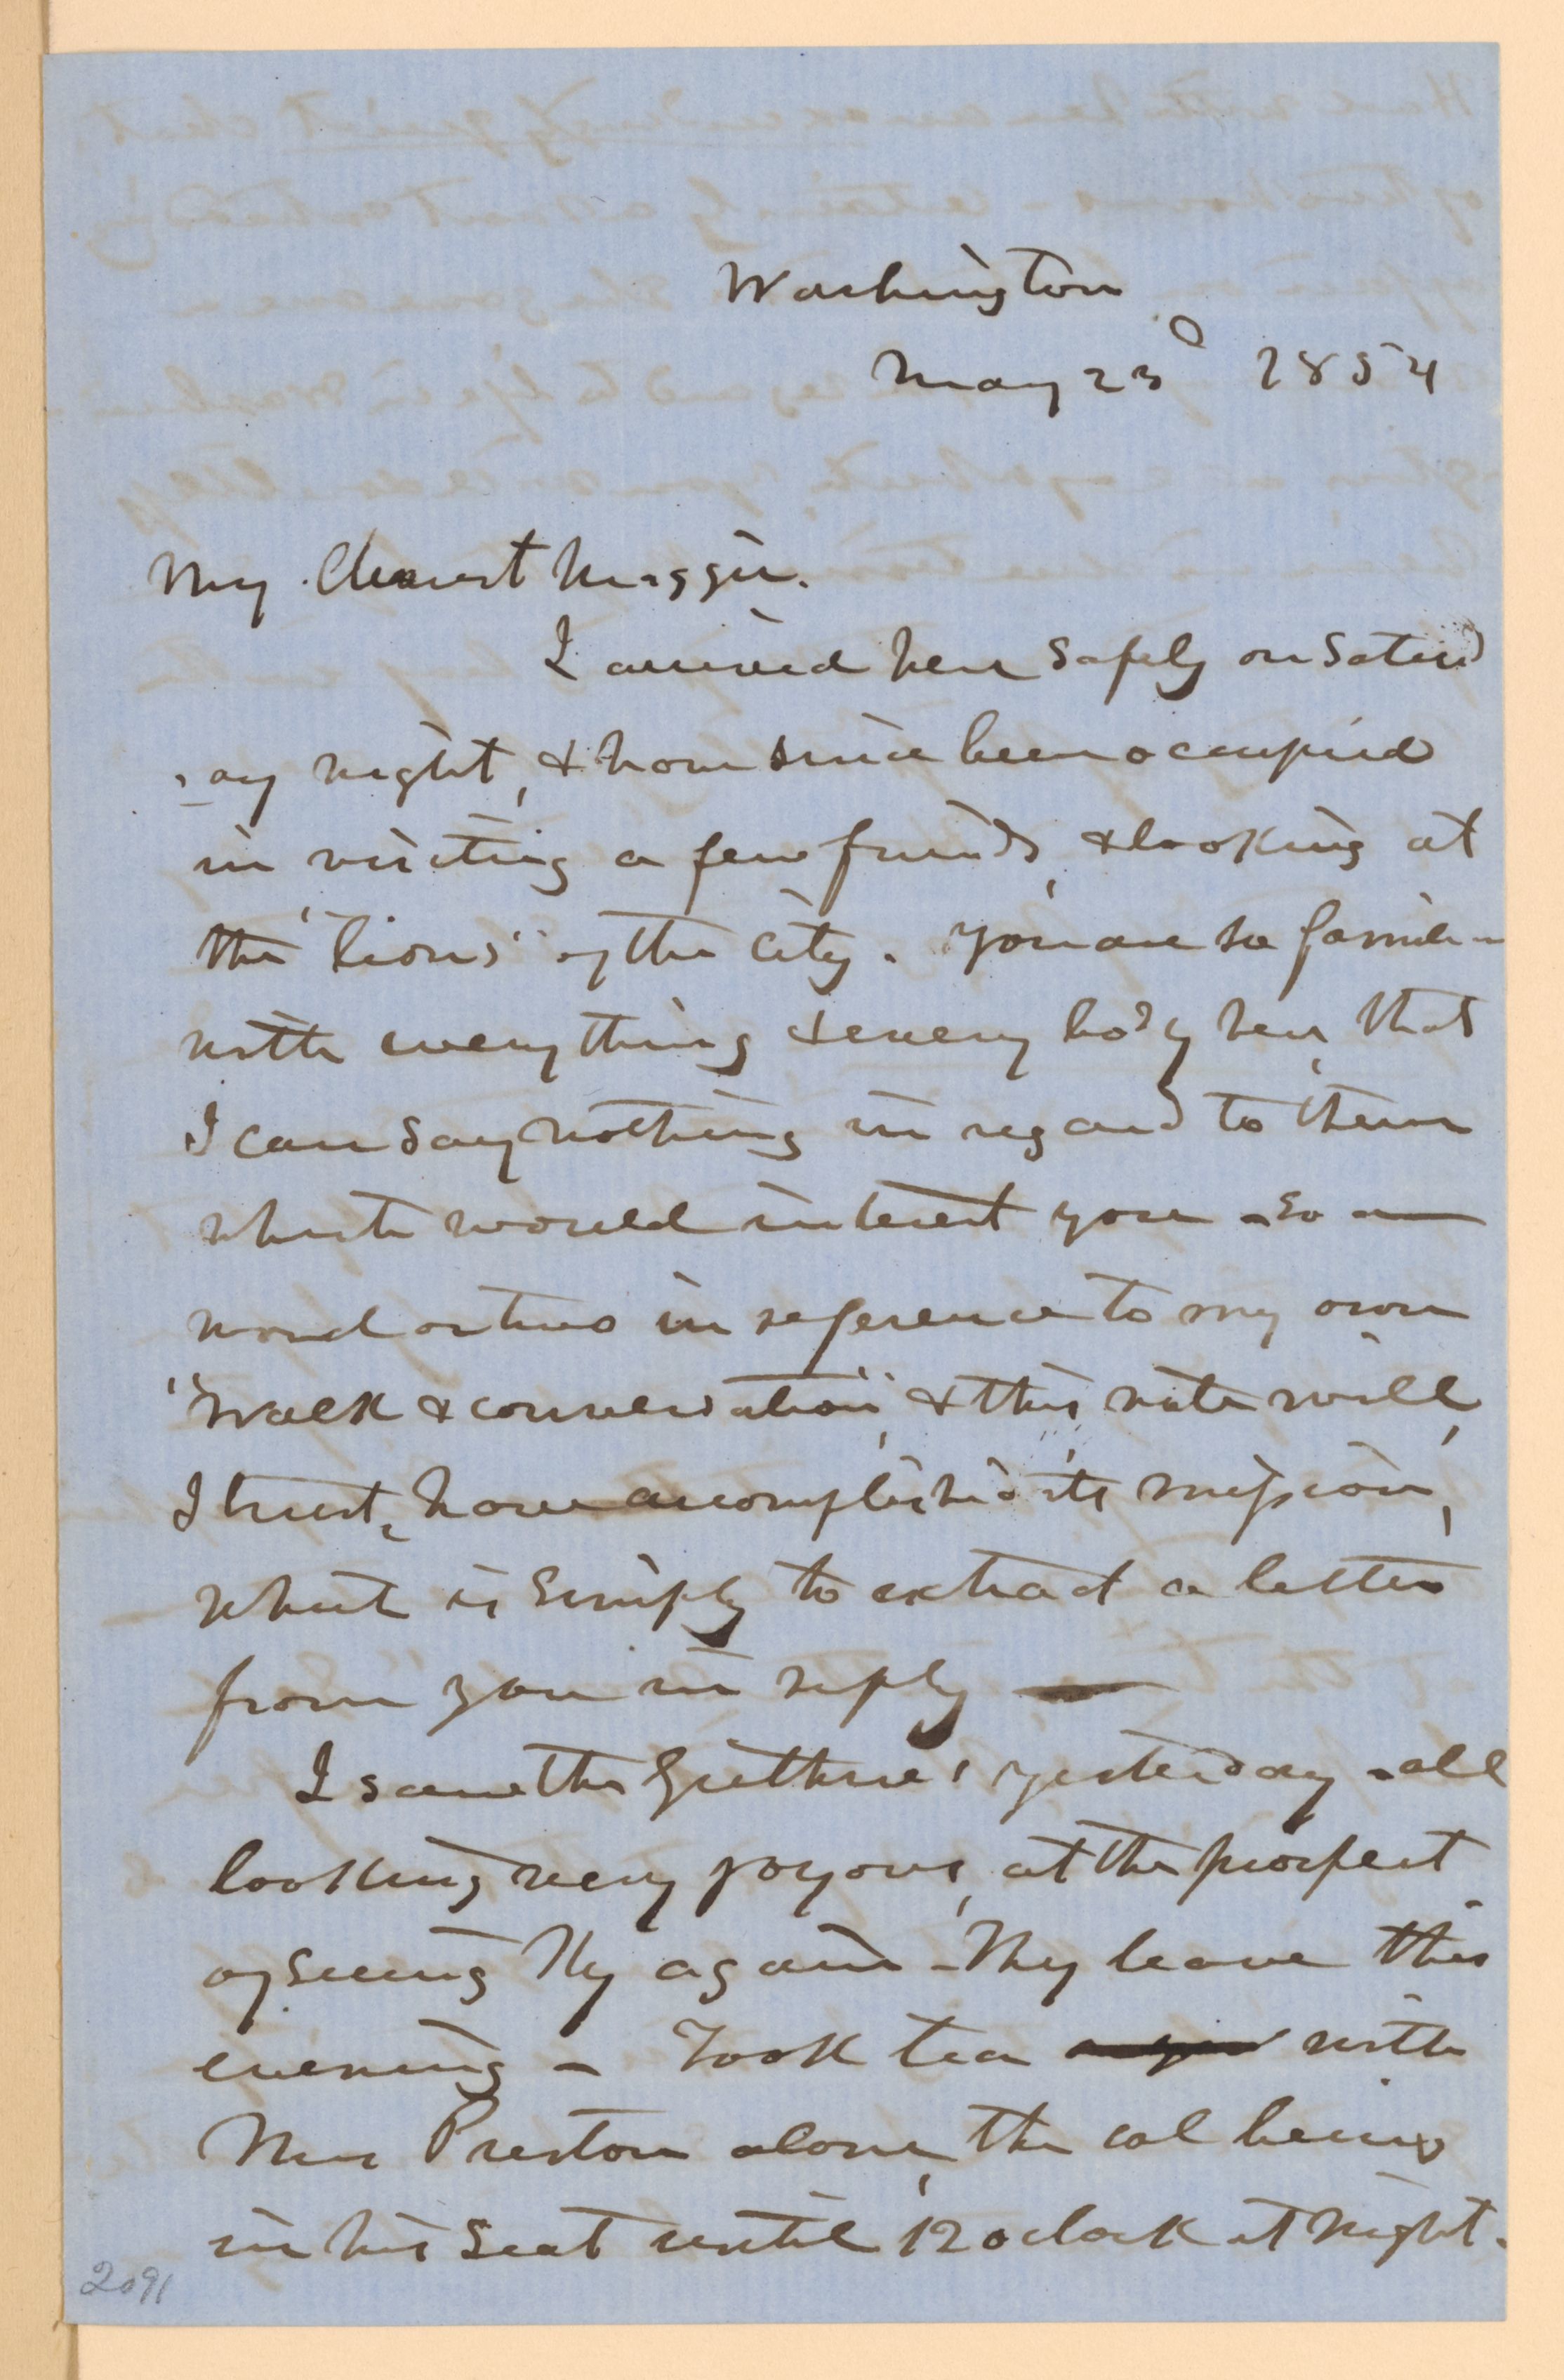 Washington
May 23d 1854
My dearest Maggie.
I arrived here safely on Saturd
-ay night, & have since been occupied
in visiting a few friends, & looking at
the "lions" of the city. You are so familiar
with everything & every body here, that
I can say nothing in regard to them
which would interest you - so a
word or two in reference to my own
"walk & conversation", & this note will,
I trust, have accomplished its mission,
which is simply to extract a letter
from you in reply —
I saw the Guthries yesterday - all
looking very joyous, at the prospect
of seeing Ky again - They leave this
evening - Took tea with
Mrs Preston alone, the Col being
in his seat until 12 oclock at night.
2091